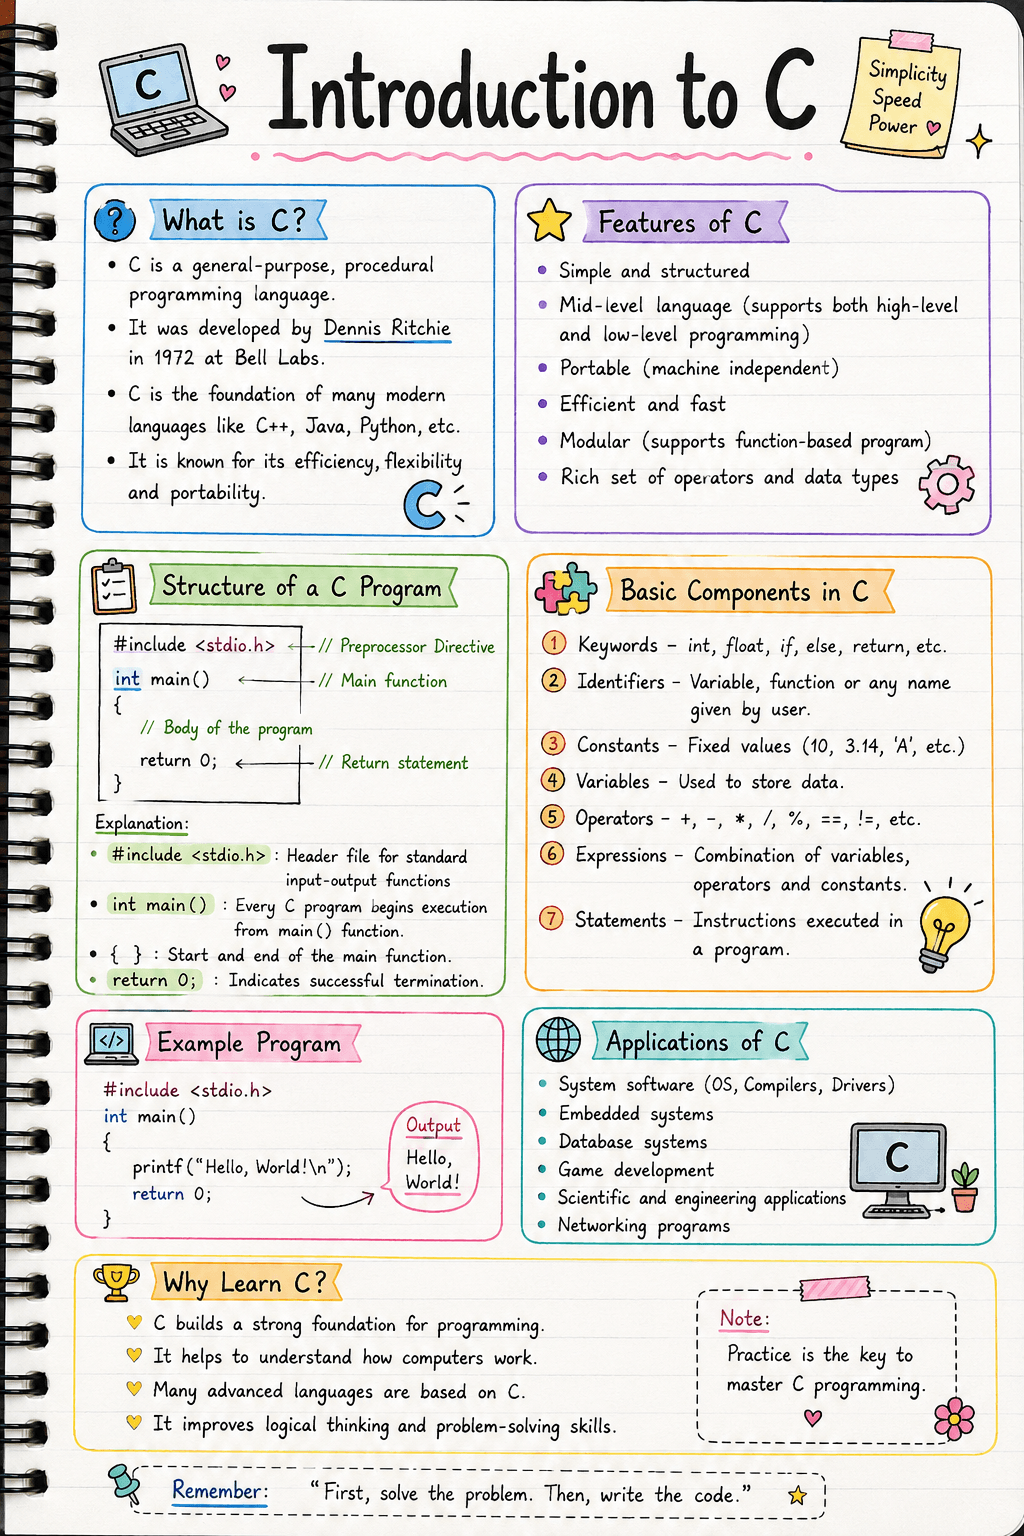 C
Introduction to C
Simplicity
Speed
Power
?
What is C?
• C is a general-purpose, procedural
programming language.
• It was developed by Dennis Ritchie
in 1972 at Bell Labs.
• C is the foundation of many modern
languages like C++, Java, Python, etc.
• It is known for its efficiency, flexibility
and portability.
C
Features of C
• Simple and structured
• Mid-level language (supports both high-level
and low-level programming)
• Portable (machine independent)
• Efficient and fast
• Modular (supports function-based program)
• Rich set of operators and data types
Structure of a C Program
#include <stdio.h> // Preprocessor Directive
int main() // Main function
{
// Body of the program
return 0; // Return statement
}
Explanation:
• #include <stdio.h> : Header file for standard
input-output functions
• int main() : Every C program begins execution
from main() function.
• { } : Start and end of the main function.
• return 0; : Indicates successful termination.
Basic Components in C
1 Keywords - int, float, if, else, return, etc.
2 Identifiers - Variable, function or any name
given by user.
3 Constants - Fixed values (10, 3.14, 'A', etc.)
4 Variables - Used to store data.
5 Operators - +, -, *, /, %, ==, !=, etc.
6 Expressions - Combination of variables,
operators and constants.
7 Statements - Instructions executed in
a program.
</>
Example Program
#include <stdio.h>
int main()
{
printf("Hello, World!\n");
return 0;
}
Output
Hello,
World!
Applications of C
• System software (OS, Compilers, Drivers)
• Embedded systems
• Database systems
• Game development
• Scientific and engineering applications
• Networking programs
C
Why Learn C?
C builds a strong foundation for programming.
It helps to understand how computers work.
Many advanced languages are based on C.
It improves logical thinking and problem-solving skills.
Note:
Practice is the key to
master C programming.
Remember: "First, solve the problem. Then, write the code."